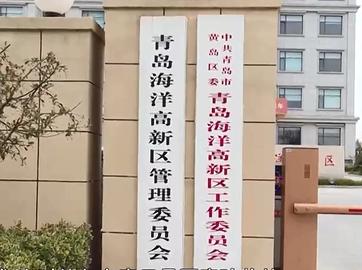 中共青岛市
黄岛区委
青岛海洋高新区工作委员会
青岛海洋高新区管理委员会